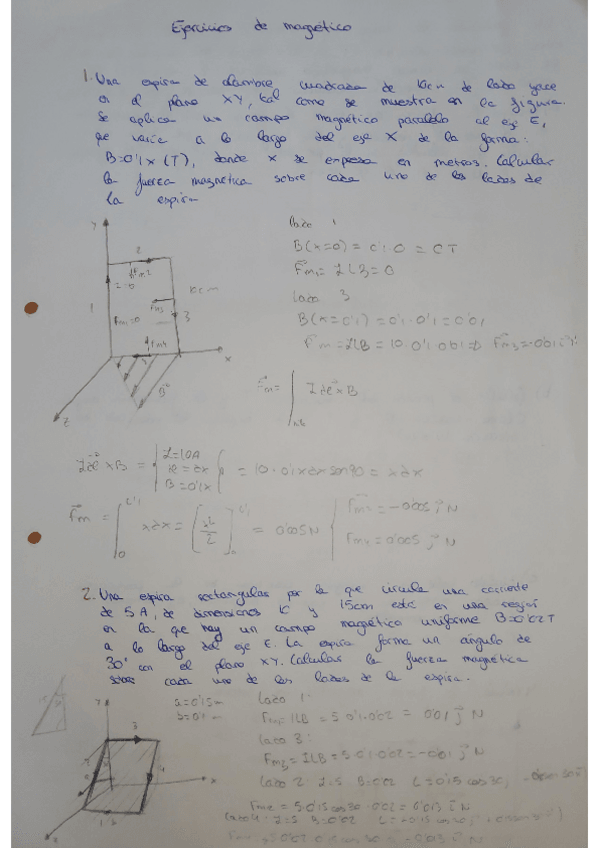 Ejercicios de magnético
1. Una espira de alambre cuadrada de 10cm de lado yace
en el plano XY, tal como se muestra en la figura.
Se aplica un campo magnético paralelo al eje Z,
que varía a lo largo del eje X de la forma:
B=0'1x (T), donde x se expresa en metros. Calcular
la fuerza magnética sobre cada uno de los lados de
la espira
lado 1
B(x=0) = 0'1·0 = 0T
Fm1 = ILB = 0
lado 3
B(x=0'1) = 0'1·0'1 = 0'01
Fm = ILB = 10·0'1·0'01
y
2
Fm2
1
10cm
Fm3
3
Fm1=0
Fm4
x
B
z
Fm = ∫ I dl x B
I dl x B = { I=10A
dl = dx
B = 0'1x } = 10·0'1x dx sen90 = x dx
Fm = ∫ x dx = [x²/2] = 0'005N { Fm2 = -0'005 j N
Fm4 = 0'005 j N
2. Una espira rectangular por la que circula una corriente
de 5A, de dimensiones 10 y 15cm está en una región
en la que hay un campo magnético uniforme B=0'02T
a lo largo del eje Z. La espira forma un ángulo de
30° con el plano XY. Calcular la fuerza magnética
sobre cada uno de los lados de la espira.
a=0'15m
b=0'1m
lado 1:
Fm1 = ILB = 5·0'1·0'02 = 0'01 j N
lado 3:
Fm3 = ILB = 5·0'1·0'02 = -0'01 j N
lado 2: I=5 B=0'02 L=0'15 cos30
Fm2 = 5·0'15 cos30·0'02 = 0'013 i N
lado 4: I=5 B=0'02